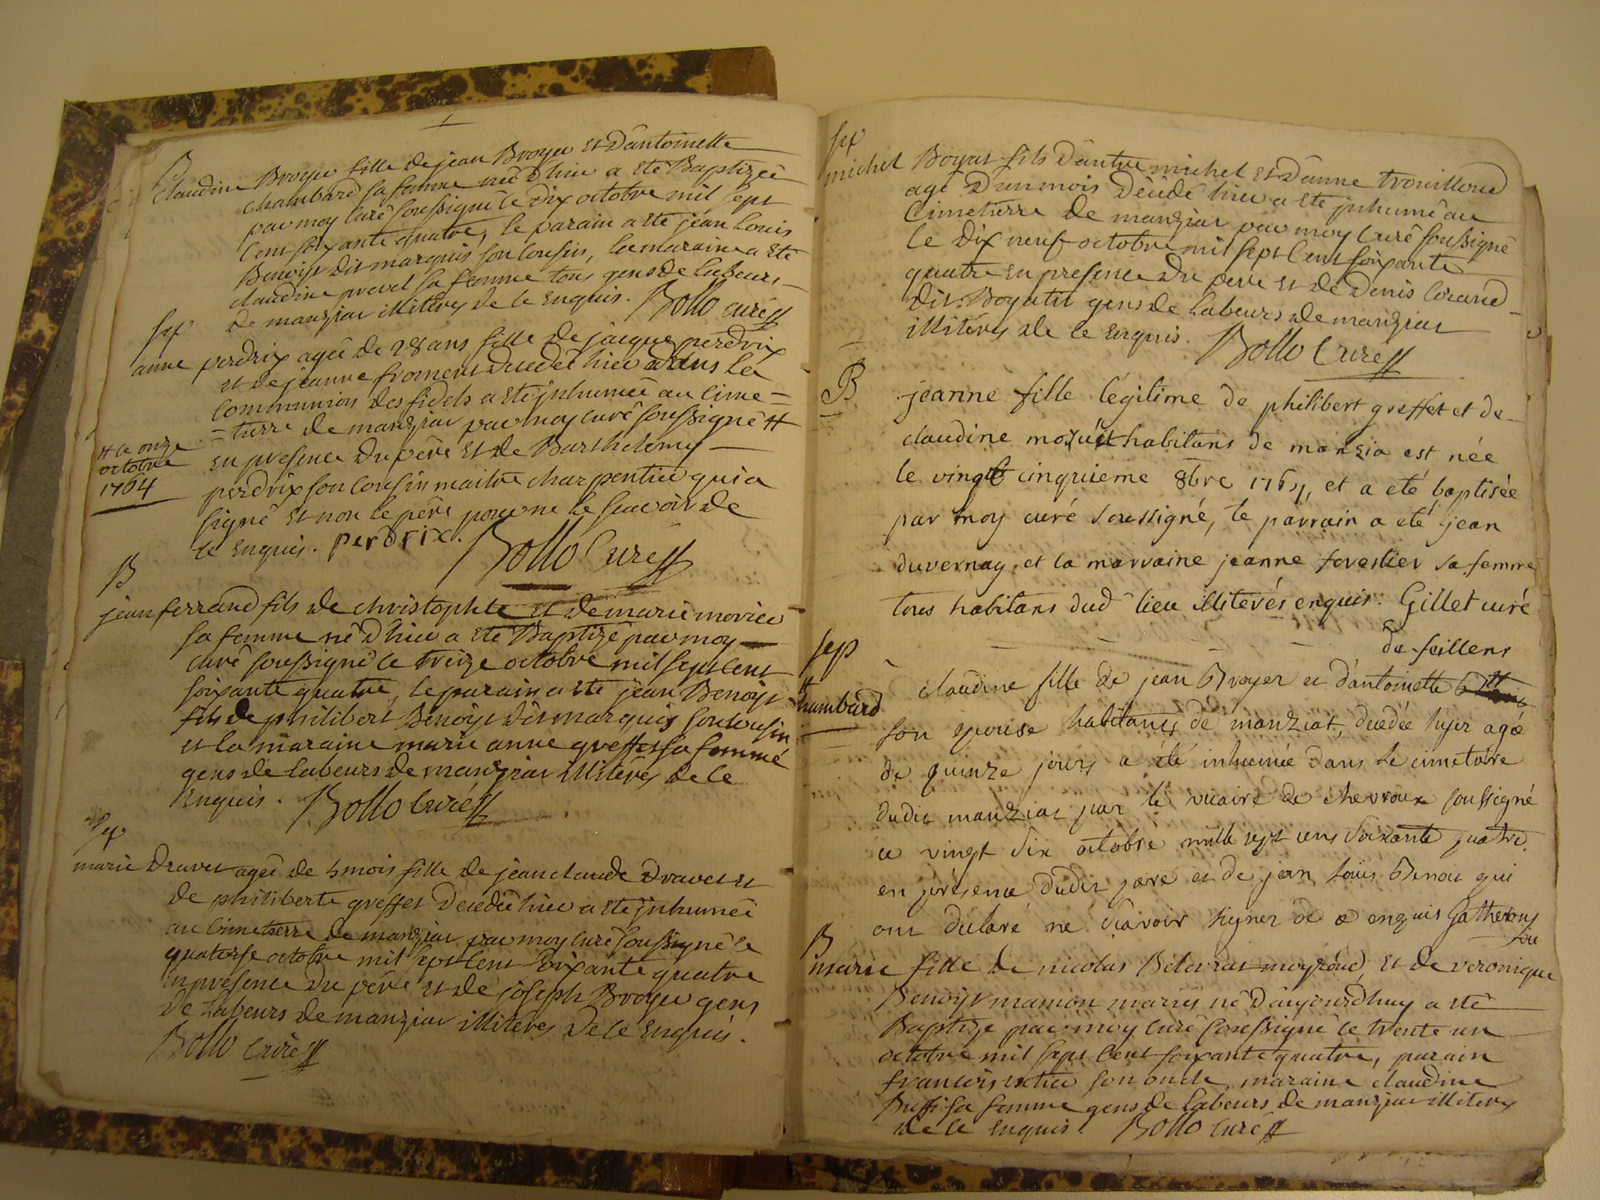 B
Claudine Broyer fille de jean Broyer et d'antoinette
chambard sa femme née d'hier a eté Baptizée
par moy curé soussigné le dix octobre mil sept
cent soixante quatre, le parain a eté jean Louis
Benoist dit marquis son cousin, la maraine a eté
claudine prevel sa femme tous gens de labeurs
de manziat illiterés de ce enquis. Bollo curé
sep
anne perdrix agée de 28 ans fille de jacque perdrix
et de jeanne froment decedée hier dans la
communion des fidels a eté inhumée au cime-
-tierre de manziat par moy curé soussigné #
# le onze
octobre
1764
en presence du pere et de Barthelemy
perdrix son cousin maitre charpentier qui a
signé et non le père pour ne le scavoir de
ce enquis. perdrix. Bollo Curé
B
jean ferrand fils de christophle et de marie morier
sa femme né d'hier a eté Baptizé par moy
curé soussigné le treize octobre mil sept cent
soixante quatre, le parain a eté jean Benoist
fils de philibert Benoist dit marquis son cousin
et la maraine marie anne greffet sa femme
gens de labeurs de manziat illiterés de ce
enquis. Bollo curé
sep
marie Dravet agée de 5 mois fille de jean claude Dravet et
de philiberte greffet decedée hier a eté inhumée
au cimetierre de manziat par moy curé soussigné le
quatorse octobre mil sept cent soixante quatre
en presence du père et de joseph Broyer gens
de labeurs de manziat illiterés de ce enquis.
Bollo curé
sep
michel Boyat fils d'autre michel et d'anne trouilloud
agé d'un mois décédé hier a eté inhumé au
cimetierre de manziat par moy curé soussigné
le dix neuf octobre mil sept cent soixante
quatre en presence du pere et de Denis
dit Boyatit gens de labeurs de manziat
illiterés de ce enquis. Bollo Curé
B
jeanne fille légitime de philibert greffet et de
claudine habitans de manzia est née
le vingt cinquieme 8bre 1764, et a eté baptisée
par moy curé soussigné, le parrain a eté jean
duvernay, et la marraine jeanne forestier sa femme
tous habitans dud lieu illiterés enquis. Gillet curé
de feillens
sep
claudine fille de jean Broyer et d'antoinette
chambard
son epouse habitants de manziat, decedée hyer agé
de quinze jours a été inhumée dans le cimetière
dudit manziat par le vicaire de chevroux soussigné
ce vingt six octobre mille sept cens soixante quatre.
en présence dudit père et de jean louis Benoit qui
ont déclaré ne sçavoir signer de ce enquis Gatheron
vic
B
marie fille de nicolas et de veronique
Benoist mariés né d'aujourdhuy a eté
Baptizé par moy curé soussigné le trente un
octobre mil sept cent soixante quatre, parain
francois son oncle, maraine claudine
sa femme gens de labeurs de manziat illiterés
de ce enquis. Bollo curé